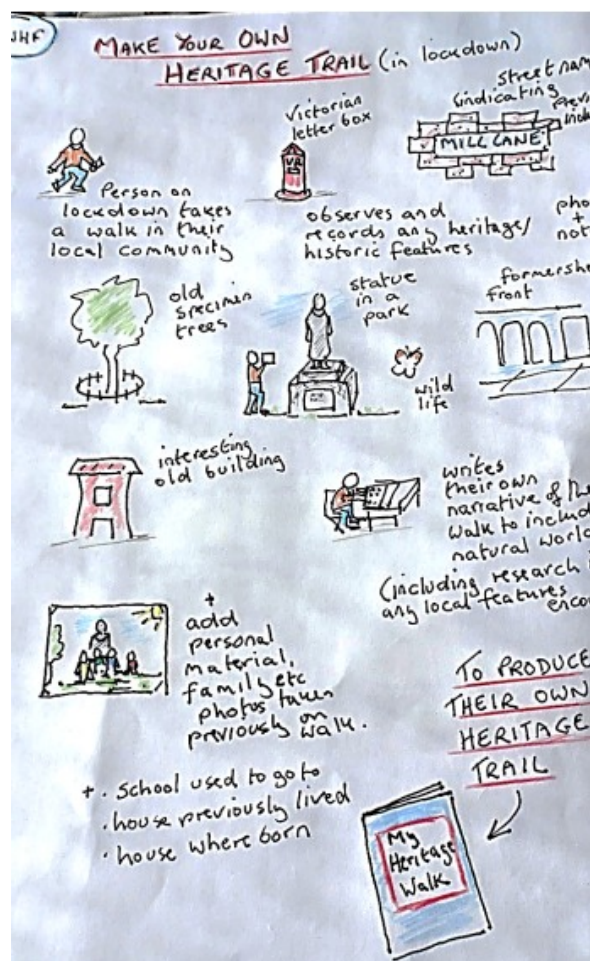 MAKE YOUR OWN
HERITAGE TRAIL (in lockdown)
Victorian
letter box
VR
street nam
(indicating
MILL CANE
Person on
lockdown takes
a walk in their
local community
observes and
records any heritage/
historic features
pho
+
not
old
specimen
trees
statue
in a
park
wild
life
front
interesting
old building
writes
their own
narrative of the
walk to includ
natural world
(including research i
any local features
enco
+
add
personal
material,
family etc
photos taken
previously on
walk.
+ . School used to go to
. house previously lived
. house where born
TO PRODUCE
THEIR OWN
HERITAGE
TRAIL
My
Heritage
Walk